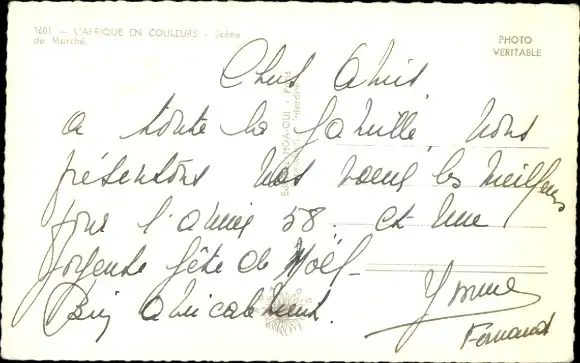 1601 — L'AFRIQUE EN COULEURS - Scène
de Marché.
PHOTO
VERITABLE
Chers Amis,
a toute la famille, nous
présentons nos voeux les meilleurs
pour l'année 58. et une
joyeuse fête de Noël
Bien amicalement.
Yvonne
Fernand
HOA-QUI